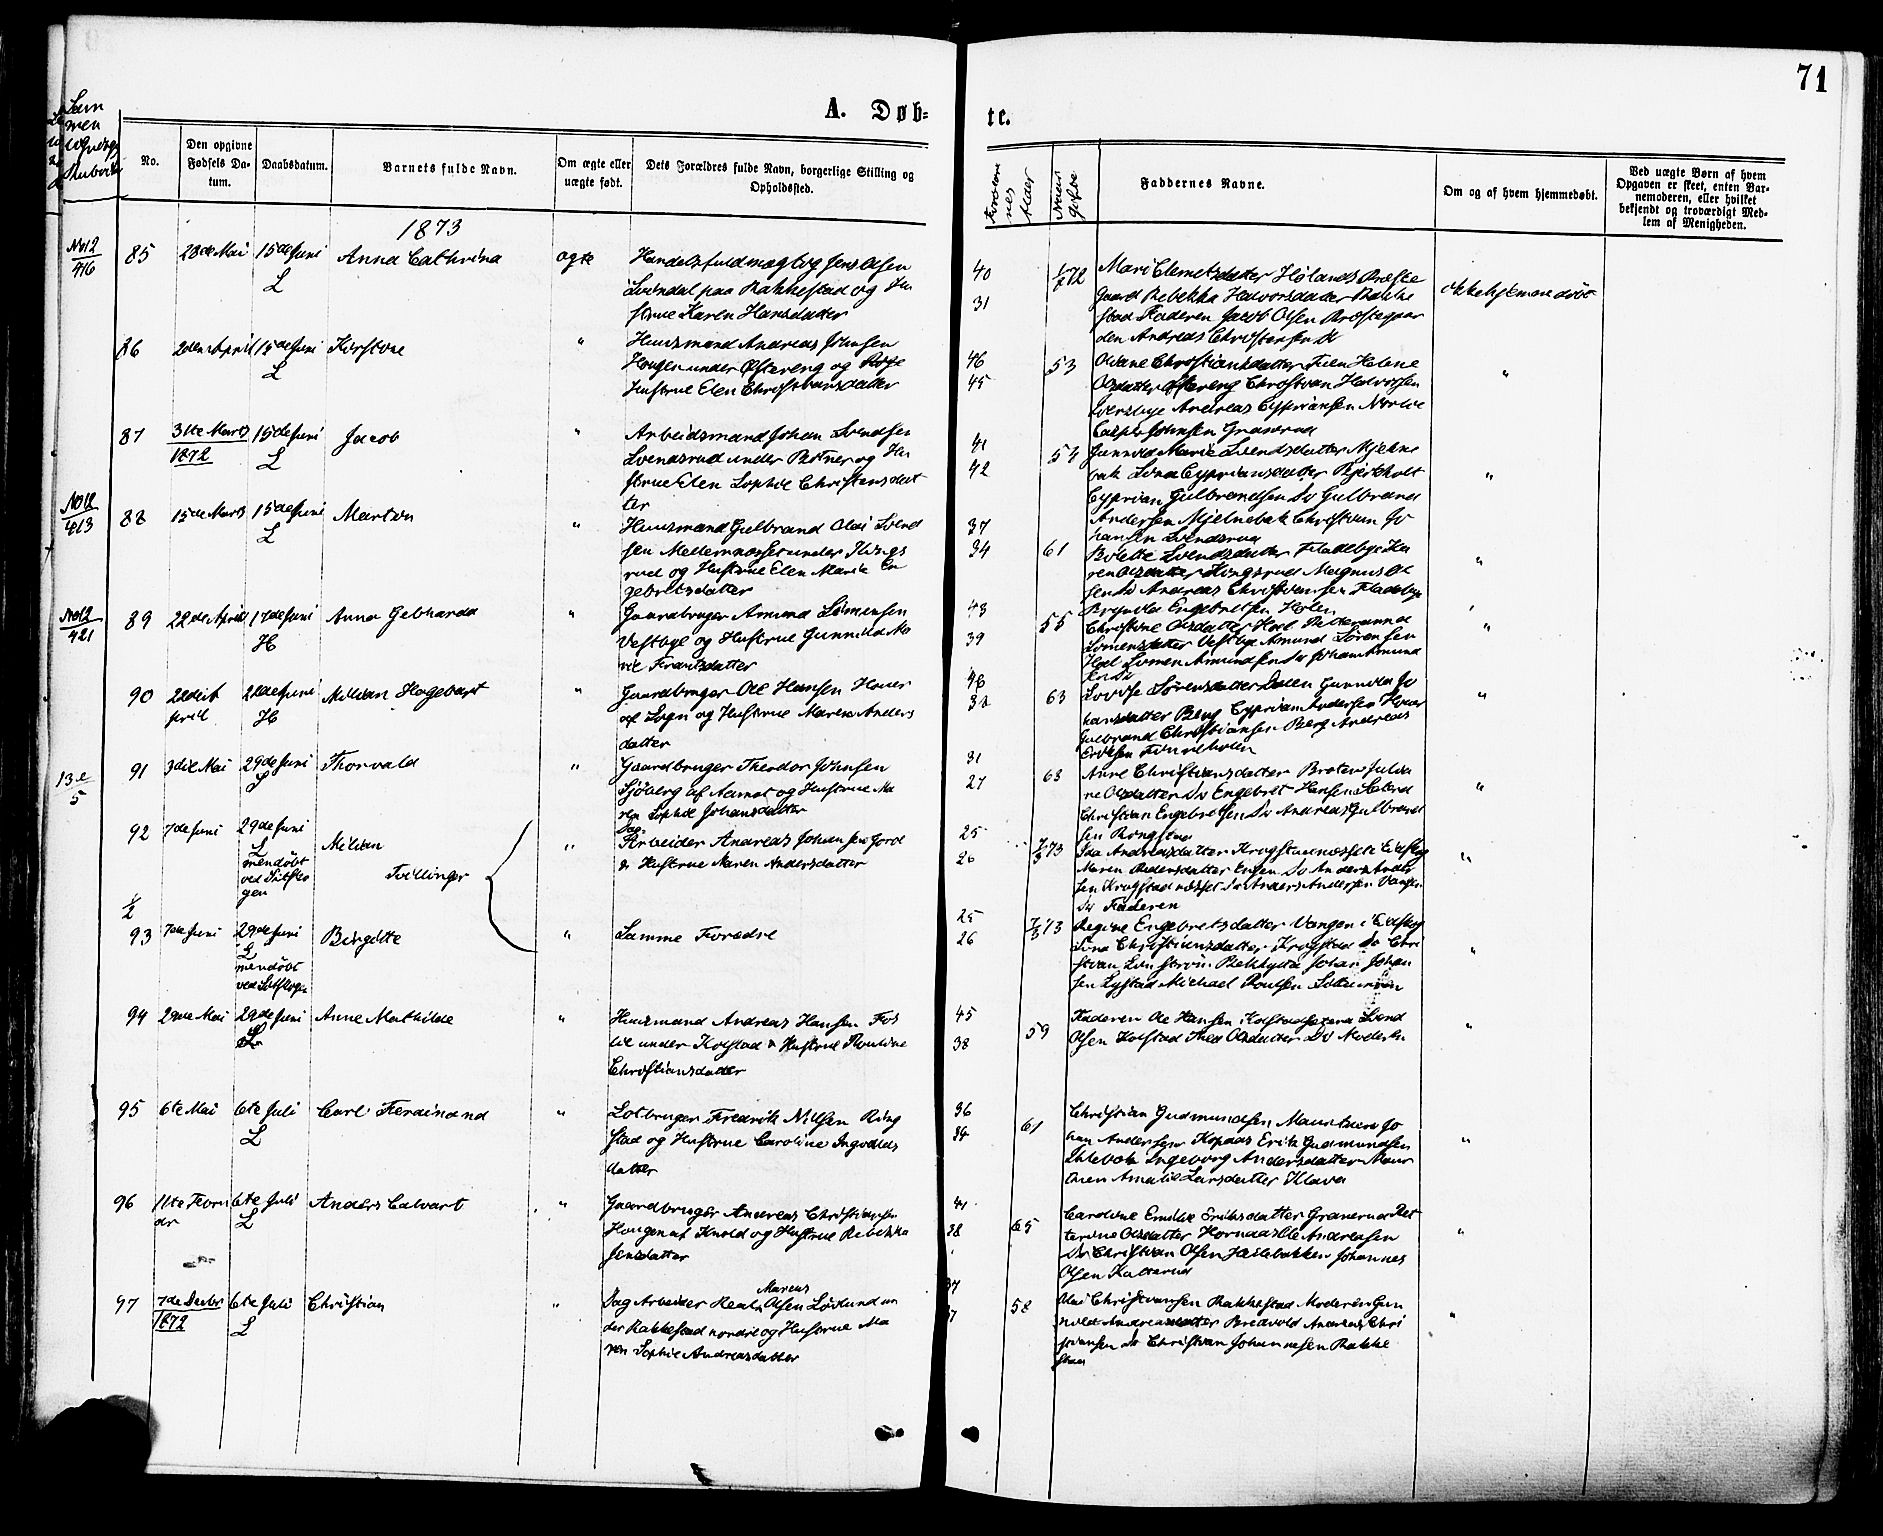 71
A. Døb-
te.
No.
Den opgivne Fødsels Da-
tum.
Daabsdatum.
Barnets fulde Navn.
Om ægte eller
uægte født.
Dets Forældres fulde Navn, borgerlige Stilling og
Opholdssted.
Faddernes Navne.
Om og af hvem hjemmedøbt.
Ved uægte Børn af hvem
Opgaven er skeet, enten Bar-
nemoderen, eller hvilket
bekjendt og troværdigt Med-
lem af Menigheden.
1873
No12
416
85 28de Mai 15de Juni Anna Cathrina ægte
L
Handelsfuldmægtig Jens Olsen
Svendal paa Rakkestad og Hu
strue Karen Hansdatter
40 31
Mari Clemetsdatter Hølands Præste
gaard Rebekka Halvorsdatter Rakke
stad Faderen Jacob Olsen Præstegaar
den Andreas Christensen
ikke hjemmedøbt
86 2den April 15de Juni Kirstine "
L
Huusmand Andreas Johnsen
Haugen under Østereng og
Hustrue Elen Christiansdatter
46 45 53
Oliane Christiansdatter Helene
Olsdatter Østereng Christian Halvorsen
Andreas Cypriansen
Casper Johnsen
"
87 31te Marts 15de Juni Jacob "
1872 L
Arbeidsmand Johan Svendsen
Svendsrud under og Hu
strue Elen Sophie Christensdat
ter
41 42 54
Gunnild Marie Svendsdatter Mjelne
bak Lina Cypriansdatter Bjerkholt
Cyprian Gulbrandsen Do Gulbrand
Andersen Mjelnebak Christian Jo
hansen Svendsrud
"
No12
413
88 15de Marts 15de Juni Martin "
L
Huusmand Gulbrand Olai Svend
sen under Kings
rud og Hustrue Elen Maria En
gebretsdatter
37 34 61
Bolette Svendsdatter Fladebye Ka
ren Olsdatter Kingsrud Magnus Ol
sen Do Andreas Christiansen Fladebye
Engebretsen Holen
"
No12
421
89 22de April 17de Juni Anna Gebharda "
H
Gaardbruger Amund Simensen
Vestbye og Hustrue Gunnild Ma
rie Frantsdatter
43 39 55
Christine Olsdatter Hoel
Simensdatter Vestbye Amund Sørensen
Hoel Simen Amundsen Do Johan Amund
sen Do
"
90 22de A 22de Juni Milian Hagebart "
pril H
Gaardbruger Ole Hansen Hauer
af Sogn og Hustrue Maren Anders
datter
48 63
Lovise Sørensdatter Dalen Gunnild Jo
hansdatter Berg Cyprian Andersen Hauer
Gulbrand Christiansen Berg Andreas
Eriksen Finneholen
"
13de
5
91 3die Mai 29de Juni Thorvald "
L
Gaardbruger Theodor Johnsen
Sjøberg af Aamot og Hustrue Ma
ren Sophie Johansdatter
31 27 63
Anne Christiansdatter Braten Julia
ne Olsdatter Do Engebret Hansen
Christian Engebretsen Do Andreas Gulbrand
sen Ringstad
"
92 7de Juni 29de Juni Milian "
L
mendøbt
Tvillinger
gen
Dag
Arbeider Andreas Johansen Jord
& Hustrue Maren Andersdatter
25 26 73
Ida Andreasdatter Krogstadnæsset Eidsberg
Maren Pedersdatter Ensen Do Anders Ander
sen Krogstadnæsset Do Anders Andersen Vangen
Do Faderen
"
1/2
93 7de Juni 29de Juni Birgitte "
L
mendøbt
Samme Forældre
25 26 73
Regine Engebretsdatter Vangen i Eidsberg
Christiansdatter Krogstad Do Chri
stian Johan Johan
sen Lystad Michael Poulsen
"
94 29de Mai 29de Juni Anne Mathilde "
L
Huusmand Andreas Hansen Fos
lie under Kolstad & Hustrue Pauline
Christiansdatter
45 38 59
Faderen Ole Hansen Kolstadsæteren Svend
Olsen Kolstad Thea Olsdatter Do Moderen
"
95 6te Mai 6te Juli Carl Ferdinand "
L
Lotbruger Fredrik Nilsen Ring
stad og Hustrue Caroline Ingvalds
datter
36 34 61
Christian Gudmundsen Maurtuen Jo
han Andersen Kopaas Erik Gudmundsen
Ihlebak Ingeborg Andersdatter Maur
tuen Amalie Larsdatter Klava
"
96 11te Febru 6te Juli Anders Calvart "
ar L
Gaardbruger Andreas Christiansen
Haugen af Knold og Hustrue Rebekka
Jensdatter
41 38 65
Caroline Emilie Eriksdatter Granerud Pet
terine Olsdatter Hornaas Ole Andreasen
Do Christian Olsen Hællebækken Johannes
Olsen Kalterud
"
97 7de Decbr 6te Juli Christian "
1872 L
Marcus
Dag Arbeider Olsen un
der Rakkestad nordre og Hustrue Ma
ren Sophie Andreasdatter
37 37 58
Olai Christiansen Rakkestad Moderen Gun
nild Andreasdatter Bredvold Andreas Chri
stiansen Do Christian Johannesen Rakke
stad
"